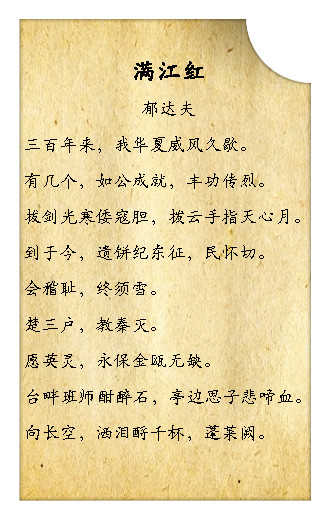 满江红
郁达夫
三百年来，我华夏威风久歇。
有几个，如公成就，丰功伟烈。
拔剑光寒倭寇胆，拨云手指天心月。
到于今，遗饼纪东征，民怀切。
会稽耻，终须雪。
楚三户，教秦灭。
愿英灵，永保金瓯无缺。
台畔班师酣醉石，亭边思子悲啼血。
向长空，洒泪酹千杯，蓬莱阙。